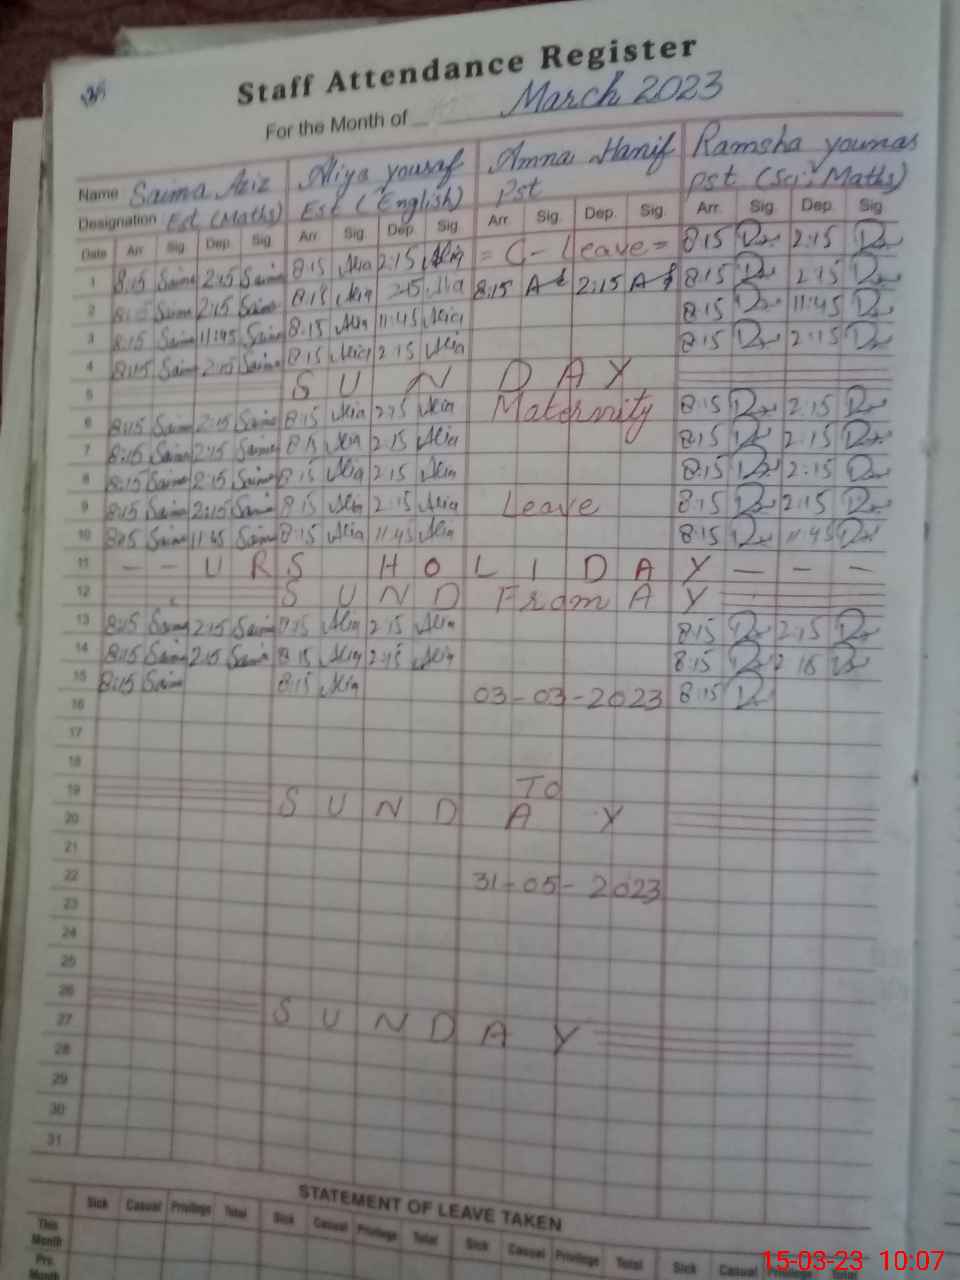 Staff Attendance Register
For the Month of March 2023
Name Saima Aziz Aliya yousaf Amna Hanif Ramsha younas
Designation Est (Maths) Est (English) Pst Pst (Sci; Maths)
Date Arr Sig. Dep. Sig. Arr. Sig. Dep. Sig. Arr. Sig. Dep. Sig. Arr. Sig. Dep. Sig
1 8:15 Saima 2:15 Saima 8:15 Alia 2:15 Alia = C - Leave = 8:15 2:15
2 8:15 Saima 2:15 Saima 8:15 Alia 2:15 Alia 8:15 2:15 8:15 2:15
3 8:15 Saima 11:45 Saima 8:15 Alia 11:45 Alia 8:15 11:45
4 8:15 Saima 2:15 Saima 8:15 Alia 2:15 Alia 8:15 2:15
5 S U N D A Y
6 8:15 Saima 2:15 Saima 8:15 Alia 2:15 Alia Maternity 8:15 2:15
7 8:15 Saima 2:15 Saima 8:15 Alia 2:15 Alia 8:15 2:15
8 8:15 Saima 2:15 Saima 8:15 Alia 2:15 Alia 8:15 2:15
9 8:15 Saima 2:15 Saima 8:15 Alia 2:15 Alia Leave 8:15 2:15
10 8:15 Saima 11:45 Saima 8:15 Alia 11:45 Alia 8:15 11:45
11 - - U R S H O L I D A Y - - -
12 S U N D From A Y
13 8:15 Saima 2:15 Saima 8:15 Alia 2:15 Alia 8:15 2:15
14 8:15 Saima 2:15 Saima 8:15 Alia 2:15 Alia 8:15 2:15
15 8:15 Saima 8:15 Alia 03-03-2023 8:15
16
17
18
19 To
S U N D A Y
20
21
22 31-05-2023
23
24
25
26
S U N D A Y
27
28
29
30
31
STATEMENT OF LEAVE TAKEN
Sick Casual Privilege Total Sick Casual Privilege Total Sick Casual Privilege Total Sick Casual Privilege Total
This Month
Pre. Month
15-03-23 10:07